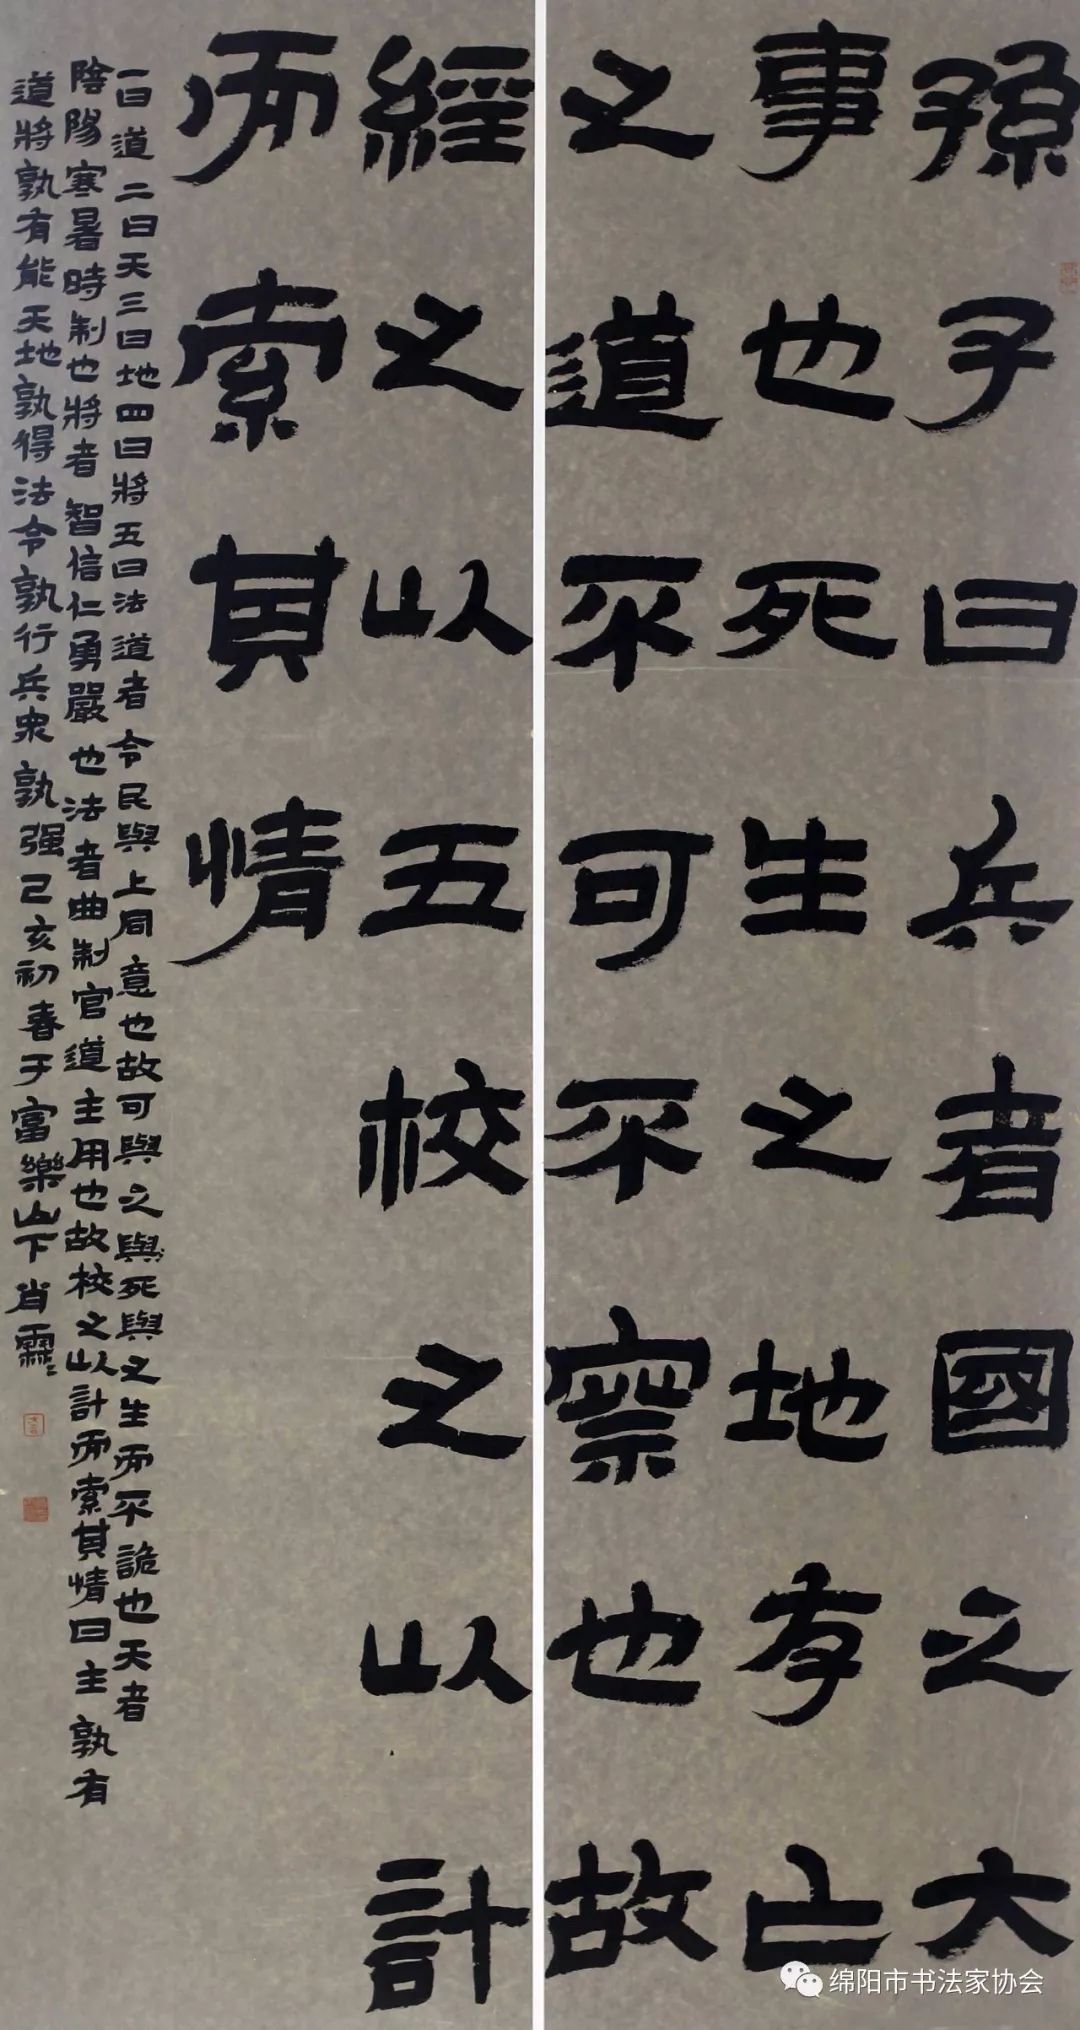 孫子曰兵者國之大
事也死生之地存亡
之道不可不察也故
經之以五校之以計
而索其情
一曰道二曰天三曰地四曰將五曰法道者令民與上同意也故可與之與死與之生而不詭也天者
陰陽寒暑時制也將者智信仁勇嚴也法者曲制官道主用也故校之以計而索其情曰主孰有
道將孰有能天地孰得法令孰行兵衆孰强己亥初春于富樂山下肖霖
绵阳市书法家协会